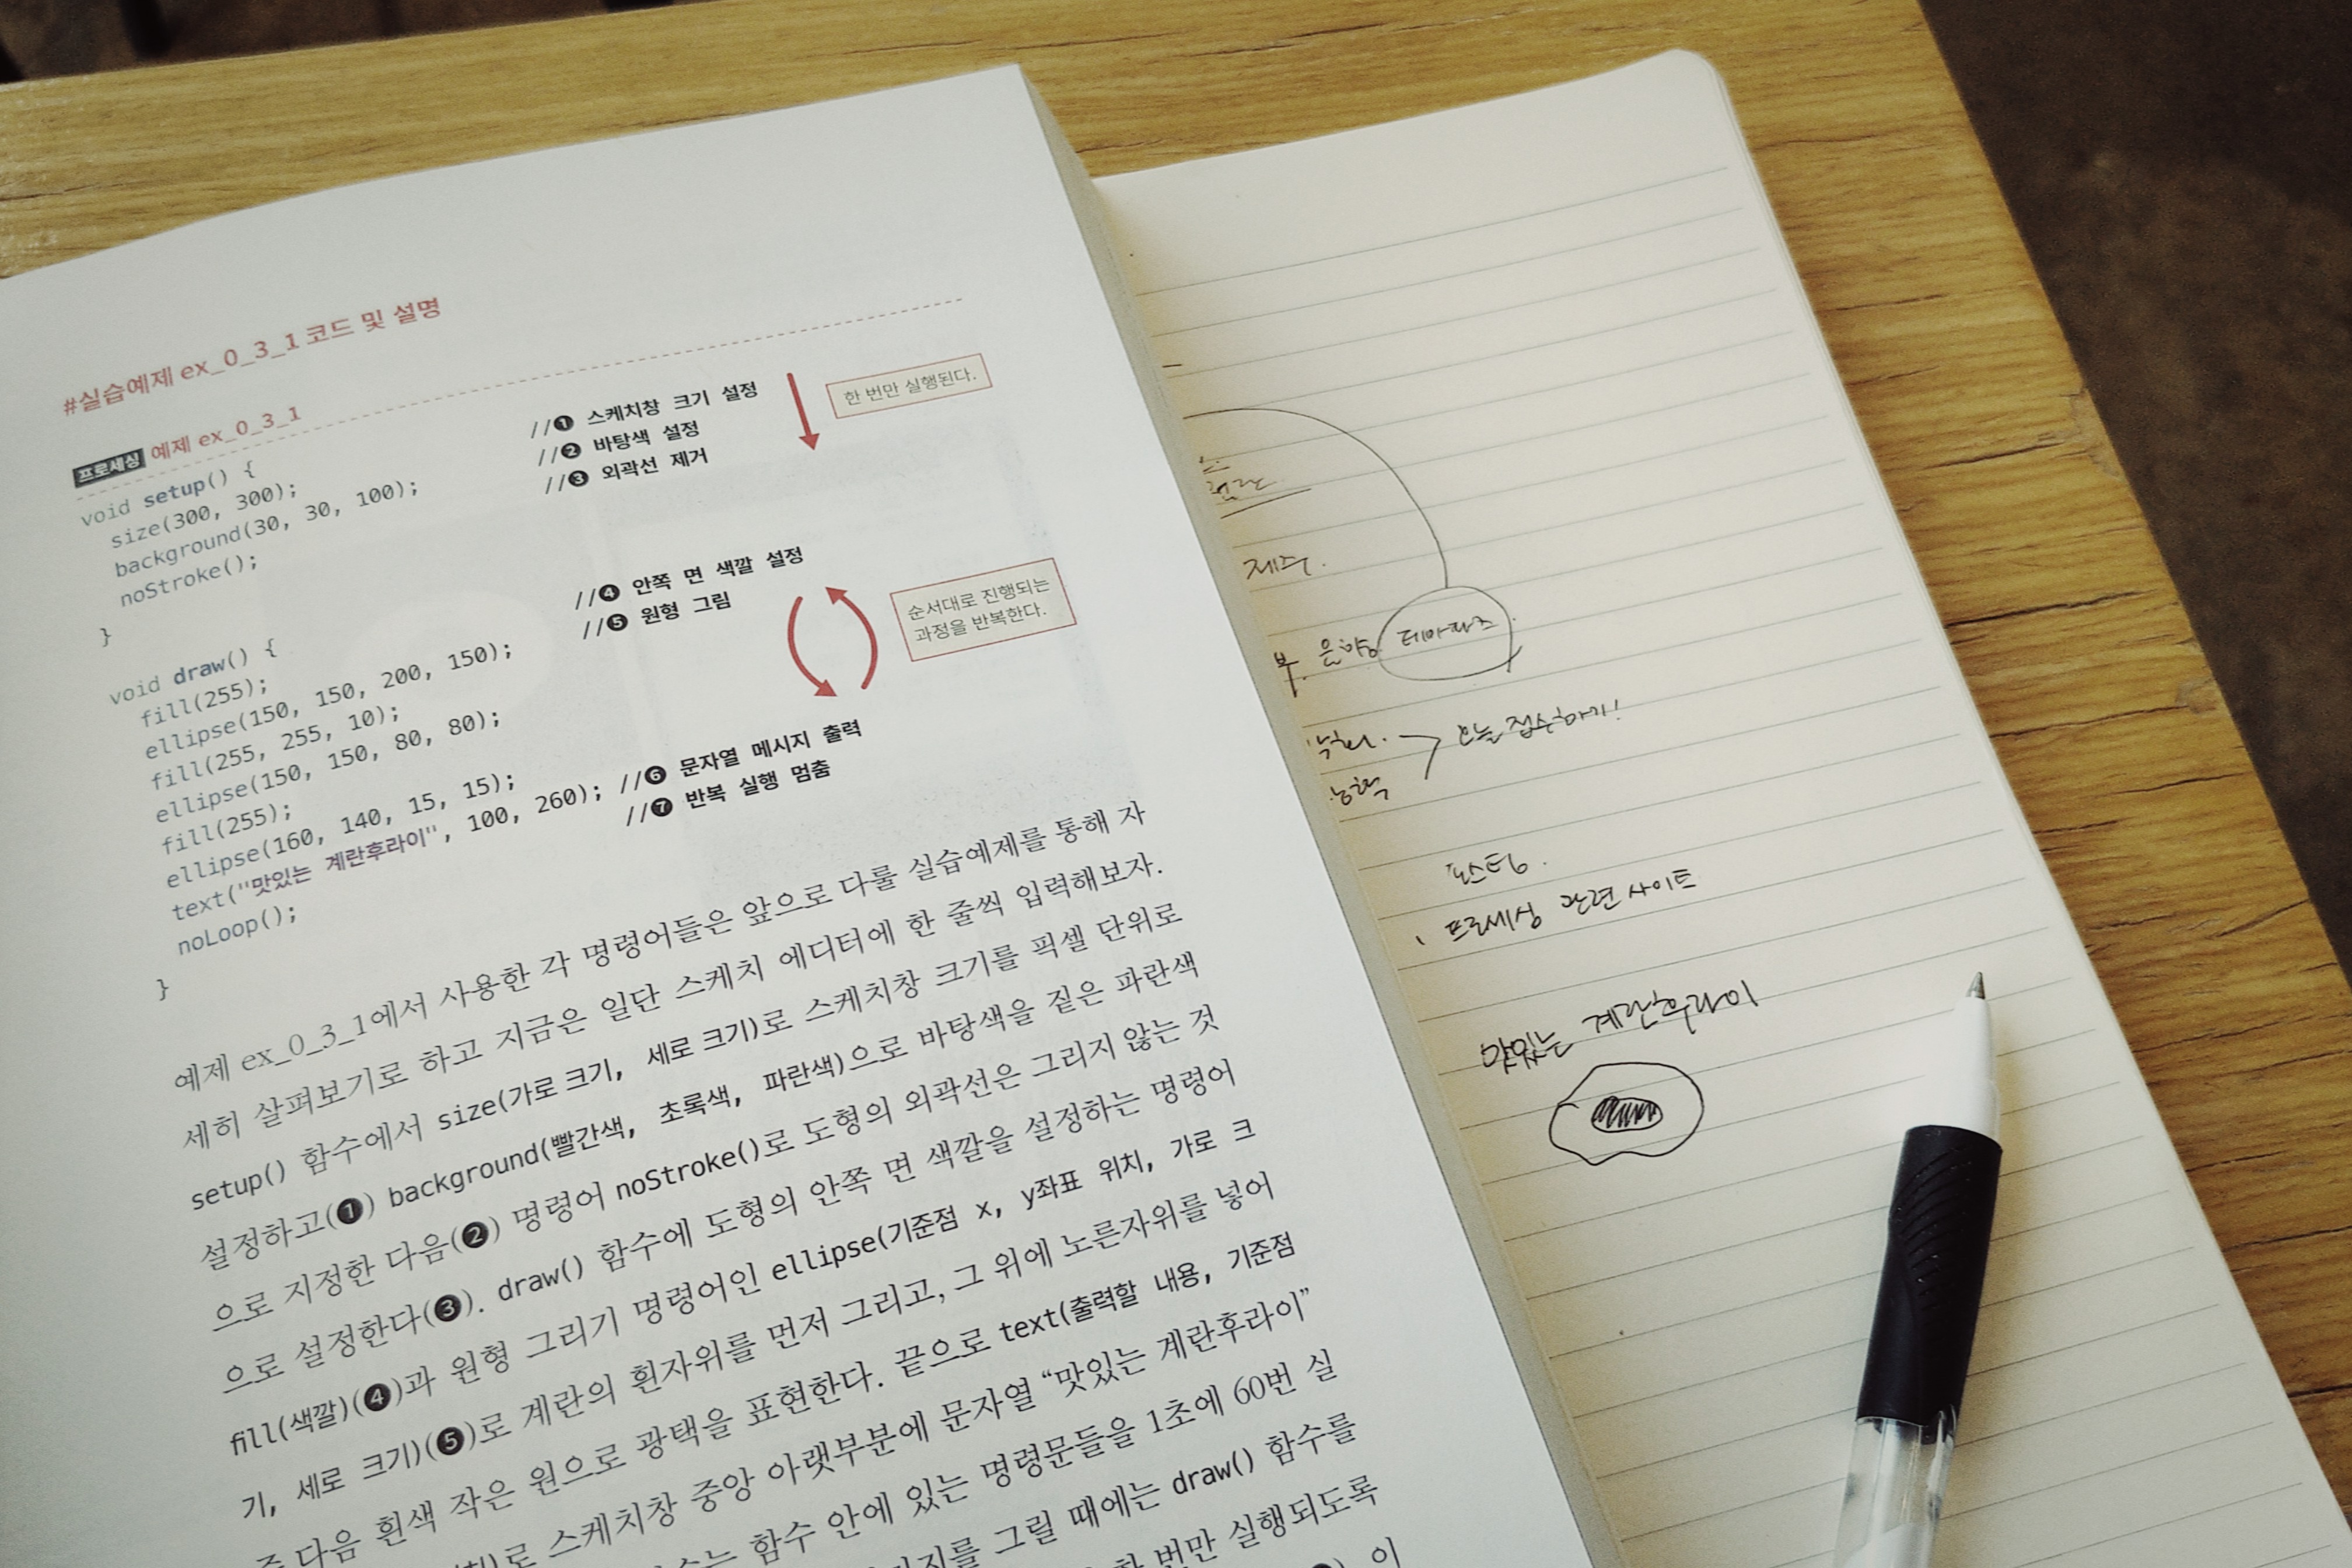 #실습예제 ex_0_3_1 코드 및 설명
프로세싱 예제 ex_0_3_1
void setup() {
size(300, 300); //❶ 스케치창 크기 설정
background(30, 30, 100); //❷ 바탕색 설정
noStroke(); //❸ 외곽선 제거
}
한 번만 실행된다.
void draw() {
fill(255); //❹ 안쪽 면 색깔 설정
ellipse(150, 150, 200, 150); //❺ 원형 그림
fill(255, 255, 10);
ellipse(150, 150, 80, 80);
fill(255);
ellipse(160, 140, 15, 15);
text("맛있는 계란후라이", 100, 260); //❻ 문자열 메시지 출력
noLoop(); //❼ 반복 실행 멈춤
}
순서대로 진행되는
과정을 반복한다.
예제 ex_0_3_1에서 사용한 각 명령어들은 앞으로 다룰 실습예제를 통해 자
세히 살펴보기로 하고 지금은 일단 스케치 에디터에 한 줄씩 입력해보자.
setup() 함수에서 size(가로 크기, 세로 크기)로 스케치창 크기를 픽셀 단위로
설정하고(❶) background(빨간색, 초록색, 파란색)으로 바탕색을 짙은 파란색
으로 지정한 다음(❷) 명령어 noStroke()로 도형의 외곽선은 그리지 않는 것
으로 설정한다(❸). draw() 함수에 도형의 안쪽 면 색깔을 설정하는 명령어
fill(색깔)(❹)과 원형 그리기 명령어인 ellipse(기준점 x, y좌표 위치, 가로 크
기, 세로 크기)(❺)로 계란의 흰자위를 먼저 그리고, 그 위에 노른자위를 넣어
다음 흰색 작은 원으로 광택을 표현한다. 끝으로 text(출력할 내용, 기준점
로 스케치창 중앙 아랫부분에 문자열 “맛있는 계란후라이”
함수 안에 있는 명령문들을 1초에 60번 실
그릴 때에는 draw() 함수를
번만 실행되도록
이
제주.
은행 테마파크
오늘 접수하기!
포스팅.
프로세싱 관련 사이트
맛있는 계란후라이